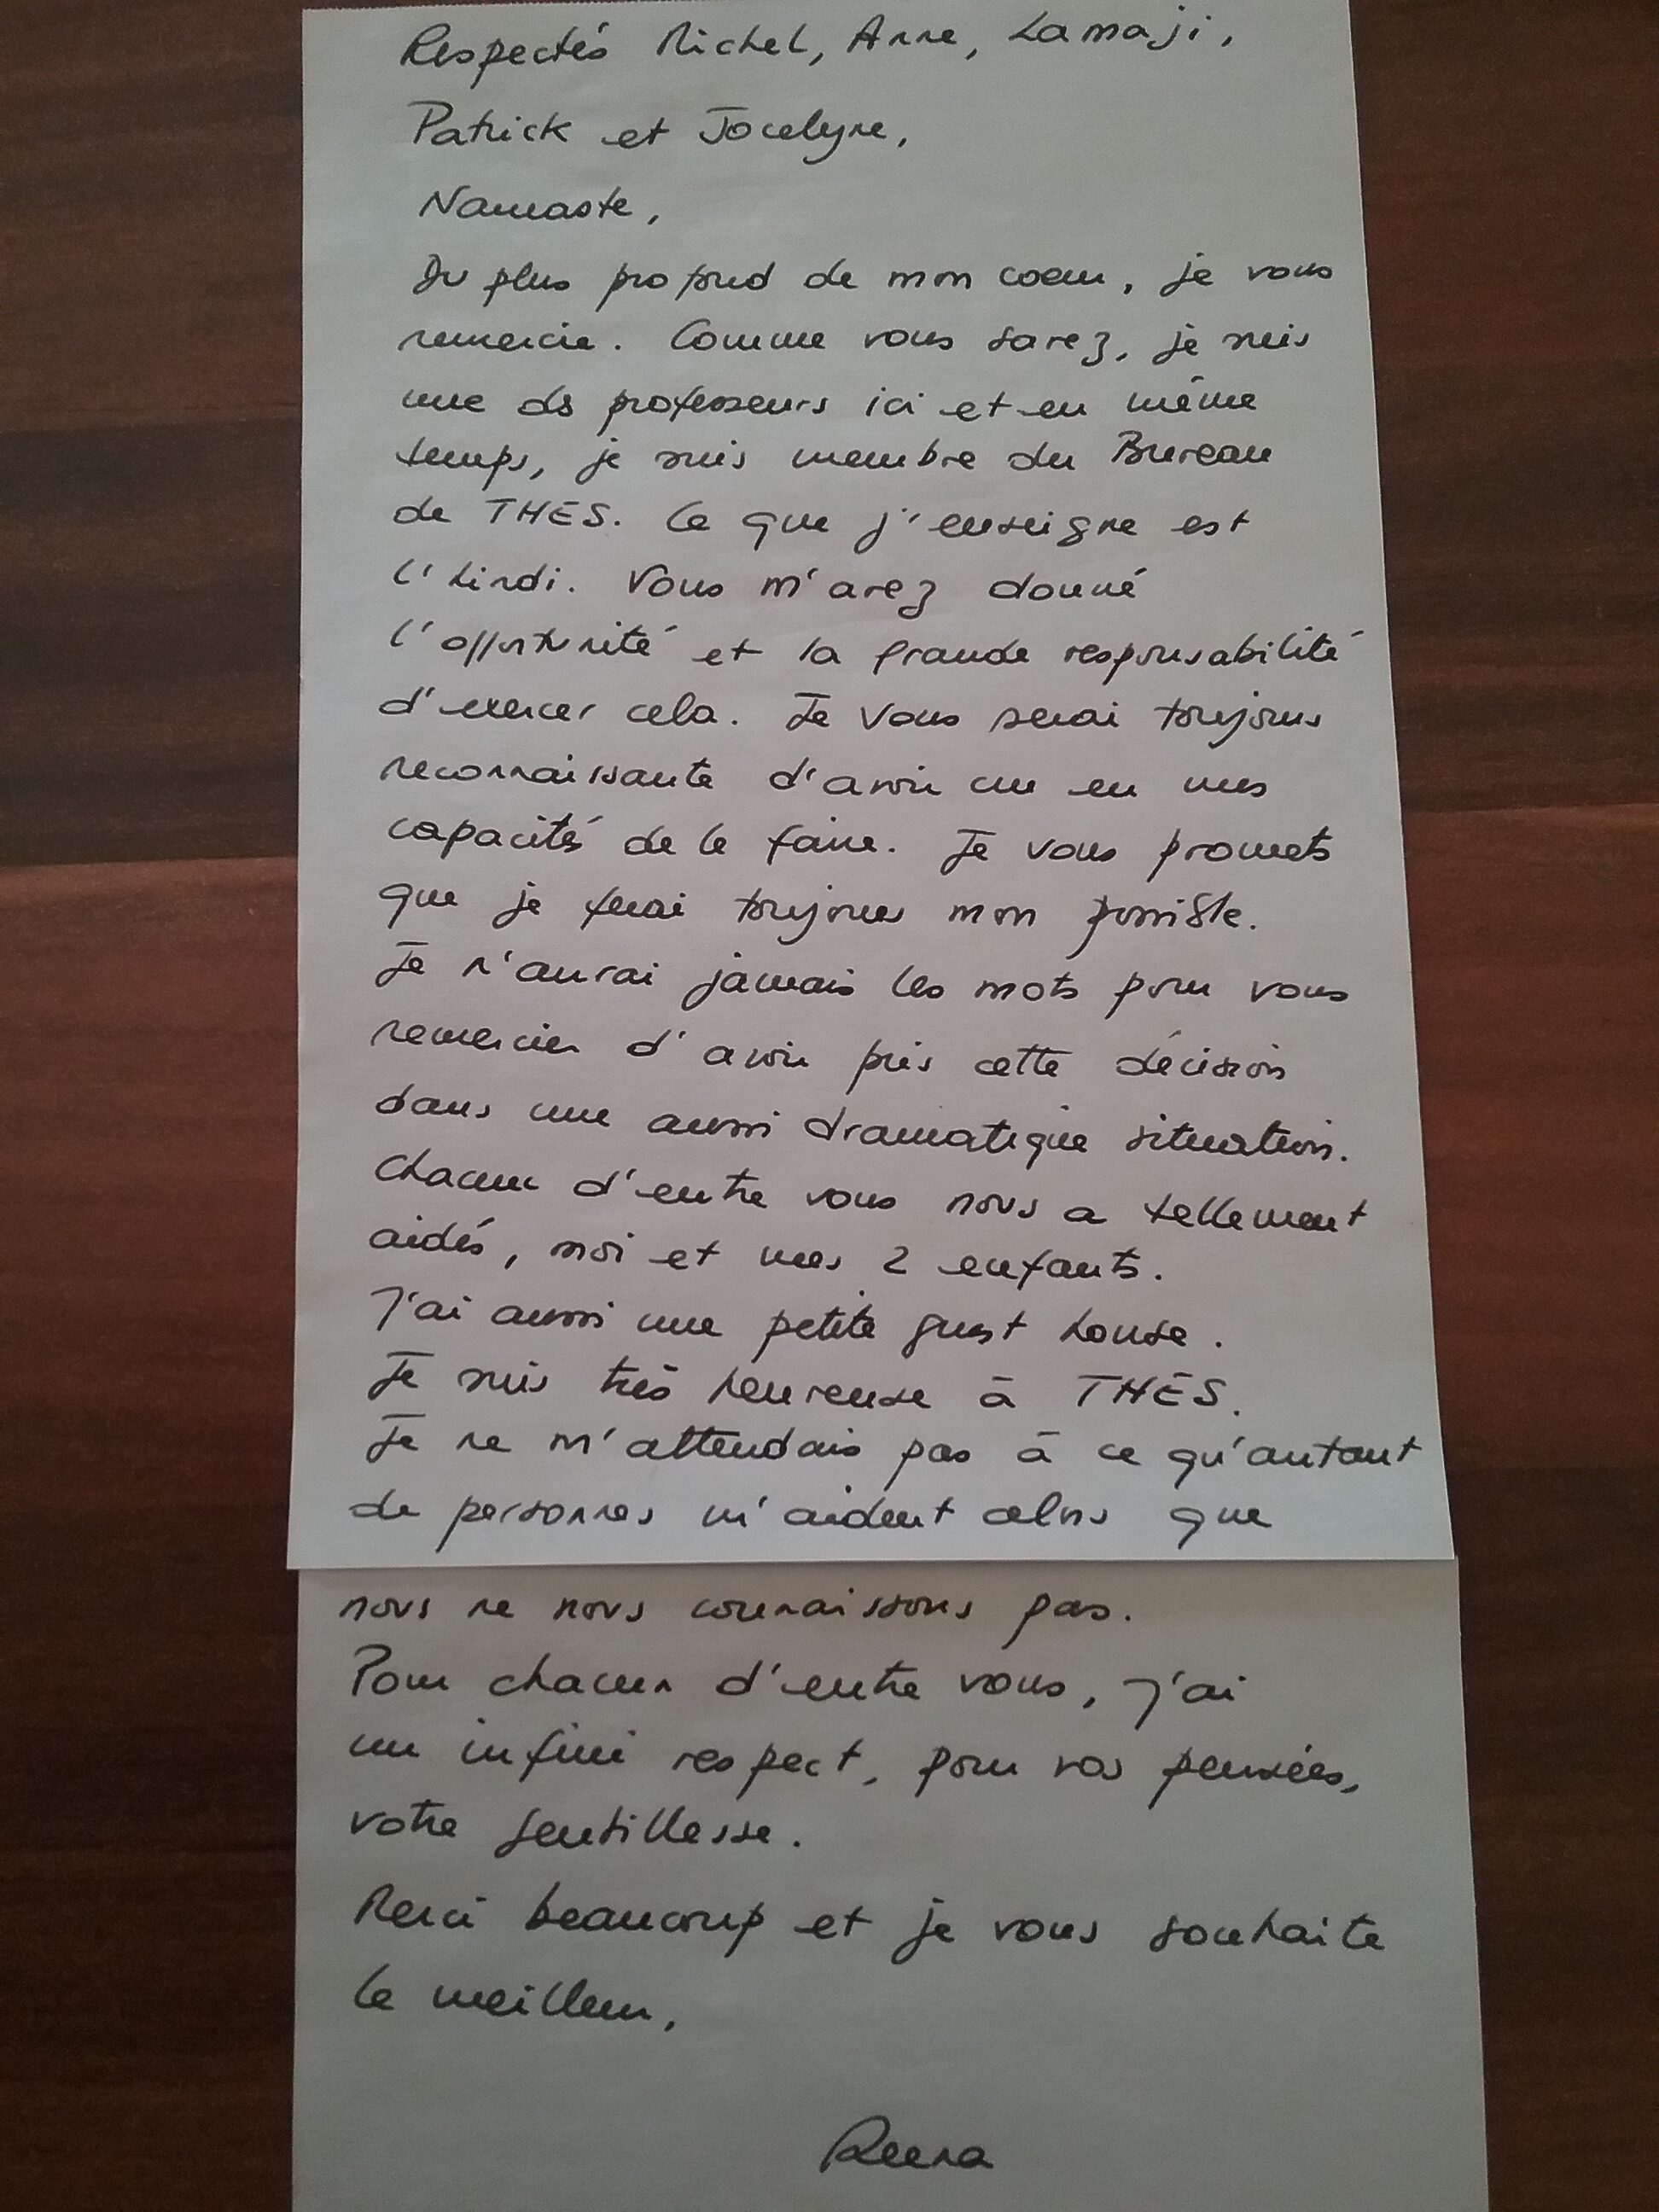 Respectés Michel, Anne, Lamaji,
Patrick et Jocelyne,
Namaste,
Du plus profond de mon coeur, je vous
remercie. Comme vous savez, je suis
une des professeurs ici et en même
temps, je suis membre du Bureau
de THES. Ce que j'enseigne est
l'hindi. Vous m'avez donné
l'opportunité et la grande responsabilité
d'exercer cela. Je vous serai toujours
reconnaissante d'avoir cru en mes
capacités de le faire. Je vous promets
que je ferai toujours mon possible.
Je n'aurai jamais les mots pour vous
remercier d'avoir pris cette décision
dans une aussi dramatique situation.
Chacun d'entre vous nous a tellement
aidés, moi et mes 2 enfants.
J'ai aussi une petite guest house.
Je suis très heureuse à THES.
Je ne m'attendais pas à ce qu'autant
de personnes m'aident alors que
nous ne nous connaissons pas.
Pour chacun d'entre vous, j'ai
un infini respect, pour vos pensées,
votre gentillesse.
Merci beaucoup et je vous souhaite
le meilleur,
Reena